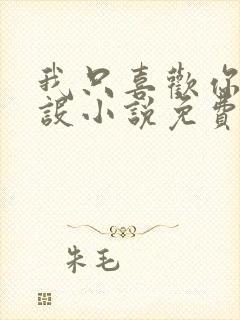 我只喜歡你
設小說免費
朱毛